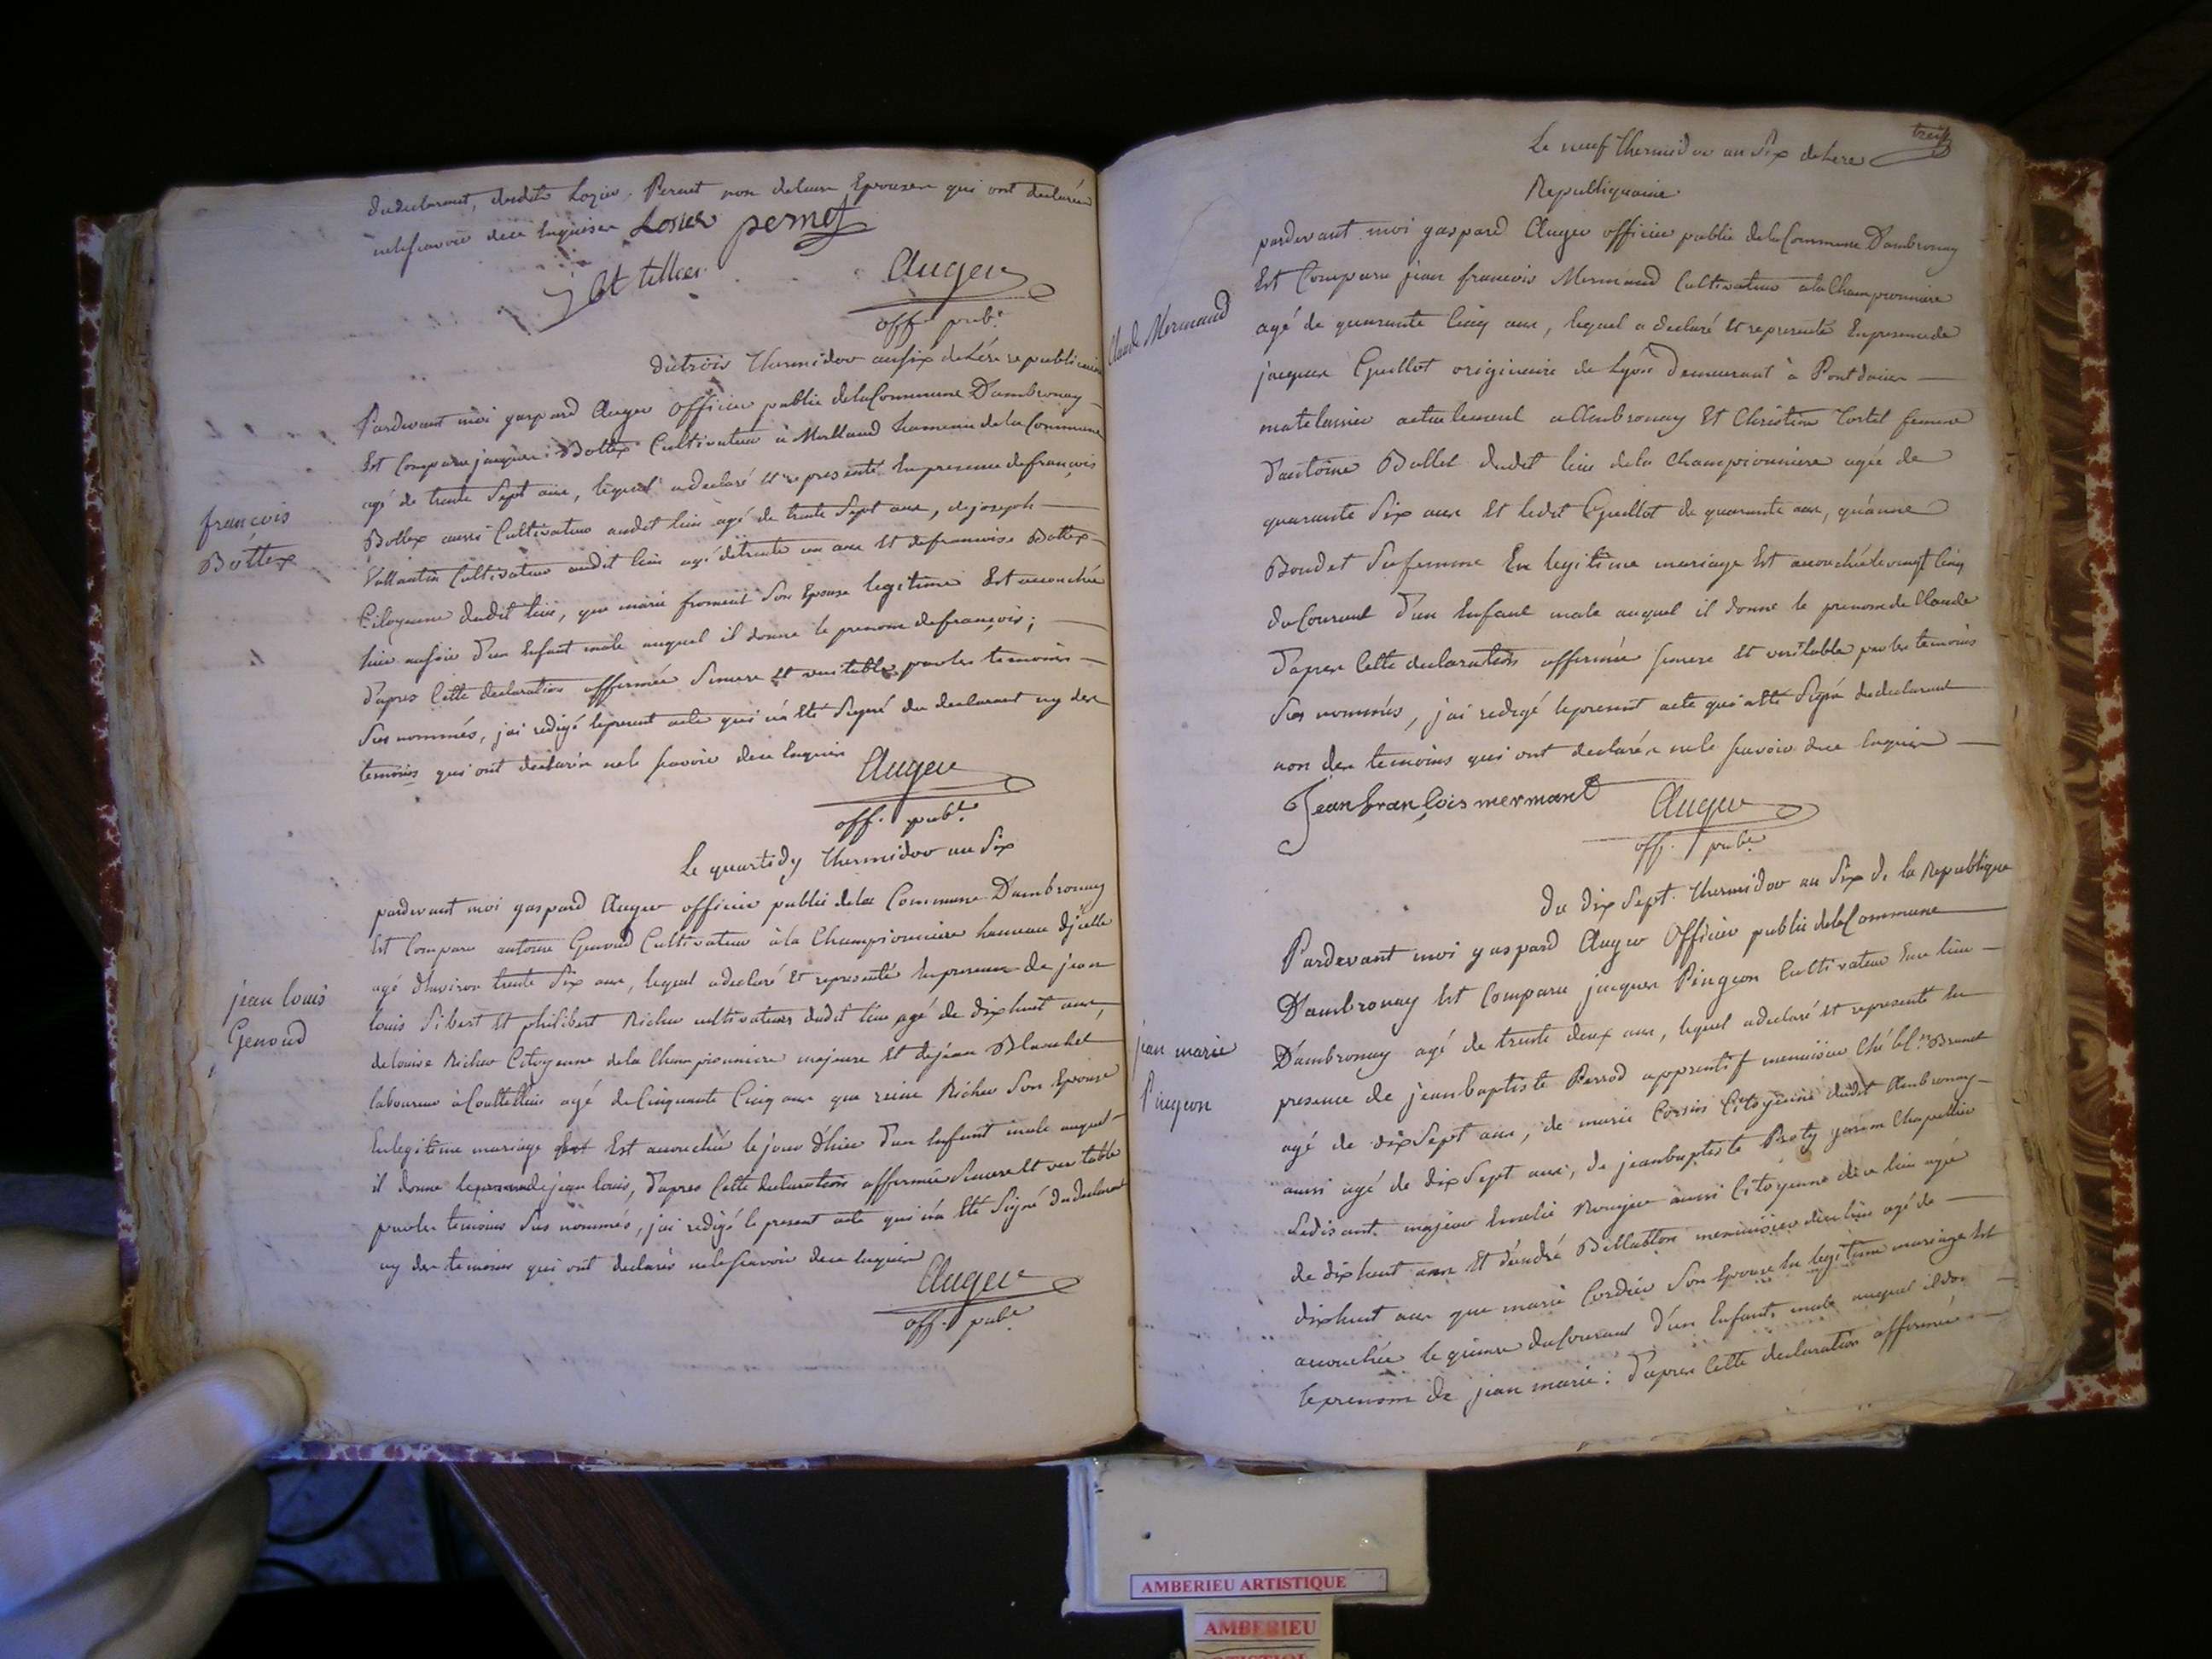 du declarant, dudit Lozier, Pernet non de leurs Epouses qui ont declarées
ne le scavoir dece Enquises Losier pernet
Auger
off. pub.
du trois thermidor an six de l'ére republicaine
Pardevant moi gaspard Auger officier public de la Commune D'ambronay
Est Comparu jacques Bottex Cultivateur à Merland hameau de la Commune
agé de trente Sept ans, lequel a declaré et representé En presence de françois
Bottex aussi Cultivateur audit lieu agé de trente Sept ans, de joseph
Vallantin Cultivateur audit lieu agé de trente un ans et de francoise Bottex
Citoyenne dudit lieu, que marie froment Son Epouse legitime Est accouchée
hier au soir d'un Enfant male auquel il donne le prenom de françois;
d'apres Cette declaration affirmée Sincere et veritable par les temoins
Sus nommés, j'ai redigé le present acte qui n'a Eté Signé du declarant ny des
temoins qui ont declarés ne le scavoir dece Enquis Auger
off. pub.
françois
Bottex
Le quartidy thermidor an Six
pardevant moi gaspard Auger officier public de la Commune D'ambronay
Est Comparu antoine Genoud Cultivateur à la Championniere hameau d'jcelle
agé d'Environ trente Six ans, lequel a declaré Et representé En presence de jean
louis Sibert et philibert Richer cultivateurs dudit lieu agé de dix huit ans,
de louise Richer Citoyenne de la Championniere majeure Et de jean Blanchet
laboureur à Couttelieu agé de Cinquante Cinq ans que reine Richer Son Epouse
En legitime mariage Est accouchée le jour d'hier d'un Enfant male auquel
il donne le prenom de jean louis, d'apres Cette declaration affirmée Sincere Et veritable
par les temoins Sus nommés, j'ai redigé le present acte qui n'a Eté Signé du declarant
ny des temoins qui ont declarés ne le scavoir dece Enquis
Auger
off. pub.
jean louis
Genoud
treize
Le neuf thermidor an Six de l'ere
Republiquaine
pardevant moi gaspard Auger officier public de la Commune D'ambronay
Est Comparu jean francois Mermand Cultivateur a la Championniere
agé de quarante Cinq ans, lequel a declaré Et representé En presence de
jacques Guillot originaire de Lyon Demeurant à Pont dain
matelassier actuelement a Ambronay Et Christine Tortel femme
d'antoine Ballet dudit lieu de la Championniere agée de
quarante Six ans Et ledit Guillot de quarante ans, qu'anne
Boudet Sa femme En legitime mariage Est accouchée le vingt Cinq
du Courant d'un Enfant male auquel il donne le prenom de Claude
d'apres Cette declaration affirmée sincere Et veritable par les temoins
Sus nommés, j'ai redigé le present acte qui a Eté Signé du declarant
non des temoins qui ont declarés ne le scavoir dece Enquis
Jean François mermand Auger
off. pub.
Claude Mermand
du dix Sept thermidor an Six de la Republique
Pardevant moi gaspard Auger Officier public de la Commune
D'ambronay Est Comparu jacques Pingeon Cultivateur
D'ambronay agé de trente deux ans, lequel a declaré Et representé En
presence de jean baptiste Perrod apprentif menuisier Ché le C.en Brunet
agé de dix Sept ans, de marie Corsin Citoyenne dudit Ambronay
aussi agé de dix Sept ans, de jean baptiste Proty garçon Chapellier
Se disant majeur Emelie Rougier aussi Citoyenne de ce lieu agée
de dix huit ans Et d'andré Billiatton menuisier de ce lieu agé de
dix huit ans que marie Cordier Son Epouse En legitime mariage Est
accouchée le quinze du Courant d'un Enfant male auquel il don
le prenom de jean marie: d'apres Cette declaration affirmée
jean marie
Pingeon
AMBERIEU ARTISTIQUE
AMBERIEU
ARTISTIQUE